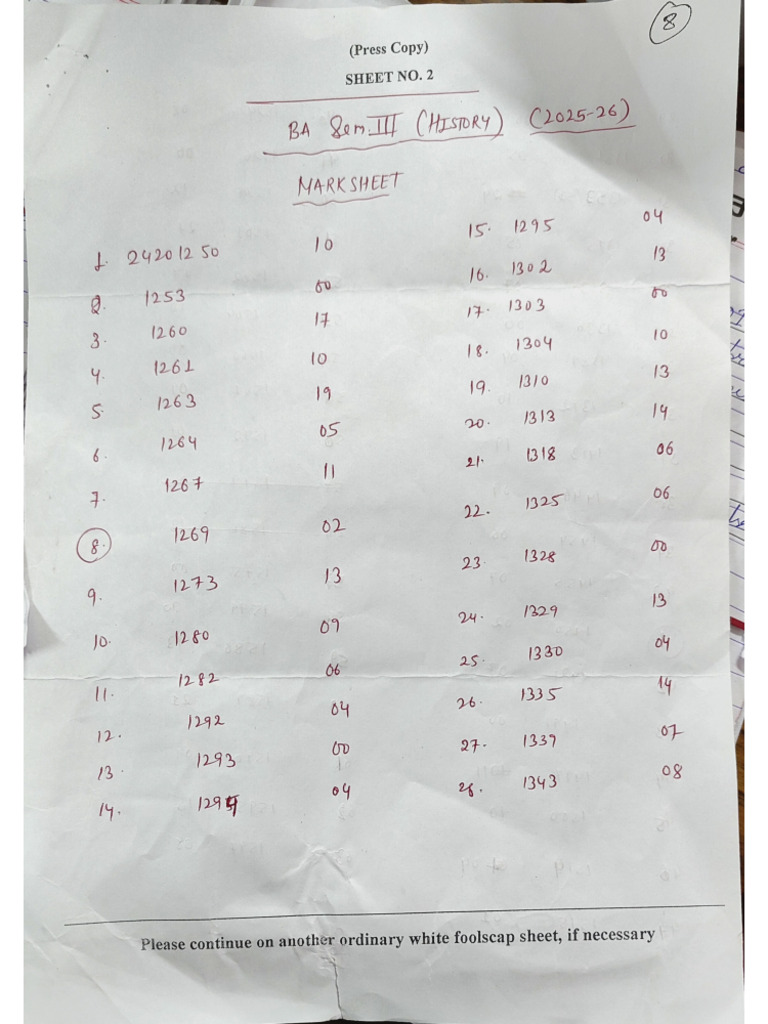 8
(Press Copy)
SHEET NO. 2
BA Sem. III (HISTORY) (2025-26)
MARKSHEET
1. 24201250 10
2. 1253 00
3. 1260 17
4. 1261 10
5. 1263 19
6. 1264 05
7. 1267 11
8. 1269 02
9. 1273 13
10. 1280 09
11. 1282 06
12. 1292 04
13. 1293 00
14. 1294 04
15. 1295 04
16. 1302 13
17. 1303 00
18. 1304 10
19. 1310 13
20. 1313 14
21. 1318 06
22. 1325 06
23 1328 00
24. 1329 13
25. 1330 04
26. 1335 14
27. 1339 07
28. 1343 08
Please continue on another ordinary white foolscap sheet, if necessary